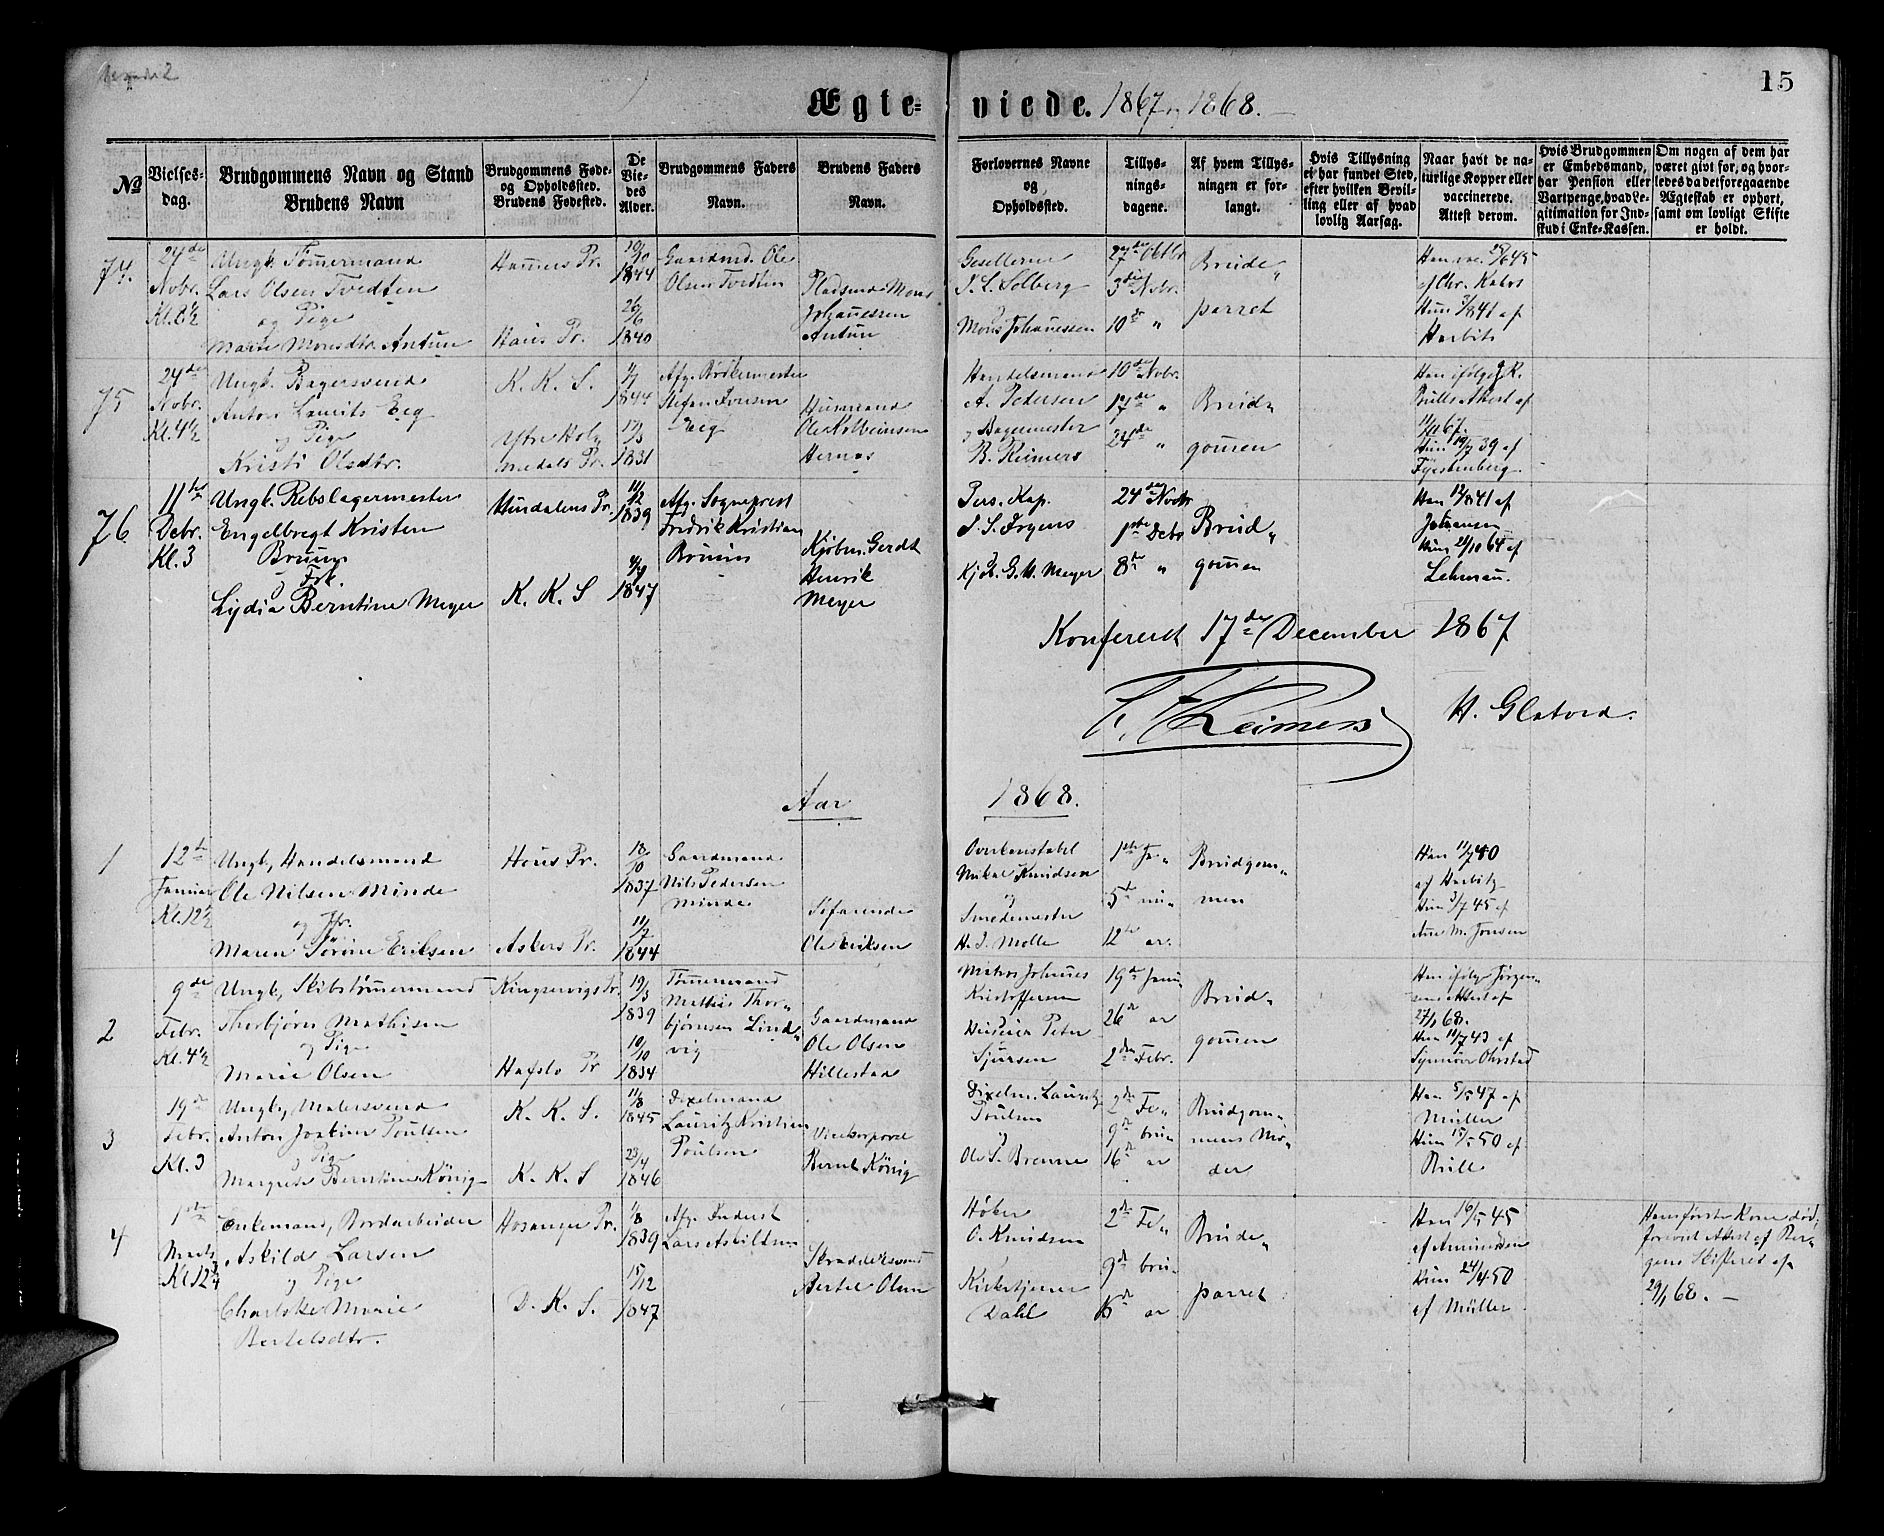 15
Ægteviede. 1867 og 1868.
No
Vielsesdag.
Brudgommens Navn og Stand
Brudens Navn
Brudgommens Føde- og Opholdssted.
Brudens Fødested.
De Viedes Alder.
Brudgommens Faders Navn.
Brudens Faders Navn.
Forlovernes Navne og Opholdssted.
Tillysningsdagene.
Af hvem Tillysningen er forlangt.
Hvis Tillysning ei har fundet Sted, efter hvilken Bevilling eller af hvad lovlig Aarsag.
Naar havt de naturlige Kopper eller vaccinerede. Attest derom.
Hvis Brudgommen er Embedsmand, har Pension eller Vartpenge, hvad Legitimation for Indskud i Enke-Kassen.
Om nogen af dem har været givt før, og hvorledes da det foregaaende Ægteskab er ophørt, samt om lovligt Skifte er holdt.
74.
24de
Novbr.
Kl. 8½
Ungk. Tømmermand
Lars Olsen Tvedten
og Pige
Marte Monsdtr. Antun
Hauus Pr.
Haus Pr.
1844
26/6
1840
Gaardmd. Ole
Olsen Tvedten
Pladsmd. Mons
Johannessen
Antun
Gesellerne
J. L. Solberg
Mons Johannessen
27de Oktbr.
3die Novbr.
10de "
Brude"
parret
af Chr.
Hun 3/8 41 af
Harbitz
75
24de
Novbr.
Kl. 4½
Ungk. Bagersvend
Anton Laurits Eeg
og Pige
Kristi Olsdtr.
K. K. S.
Ytre Hol
medals Pr.
1844
17/3
1831
Afg. Bødkermester
Stefan Iversen
Eeg
Husmand
Ole Kolbeinsen
Hernæs
Handelsmand
A. Pedersen
og Bagermester
B. Reimers
10de Novbr.
17de "
24de "
Brud"
gommen
Bulls Attest af
11/11 67.
Hun 19/7 39 af
76
11te
Debr.
Kl. 3
Ungk. Rebslagermester
Engelbregt Kristen
Bruun
og Frk.
Lydia Berntine Meyer
Hindalens Pr.
K. K. S
11/12
1839
1847
Afg. Sogneprest
Fredrik Kristian
Bruun
Kjøbm. Gerdt
Henrik
Meyer
Pers. Kap.
J. S. Irgens
Kjøb. G. H. Meyer
24de Novbr
1ste Debr
8de "
Brud"
gommen
Han 12/8 41 af
Hun 21/10 64 af
Lehmann.
Konfereret 17de December 1867
Reimers
H. Glatved.
Aar 1868.
1
12te
Januar
Kl. 12½
Ungk., Handelsmand
Ole Nilsen Minde
og Jfr.
Maren Sørine Eriksen
Hous Pr.
Askers Pr.
18/10
1837
11/7
1844
Gaardmand
Nils Pedersen
Minde
Søfarende
Ole Eriksen
Overkonstabel
Mikal Knudsen
og
Smedemester
H. J. Molle
1ste Ja"
5te nu"
12te ar.
Brudgom"
men
Han 11/7 40
af Harbitz
Hun 3/7 45 af
Ane M. Jonsen
2
9de
Febr.
Kl. 4½
Ungk., Skibstømmermand
Thorbjørn Mathisen
og Pige
Marie Olsen
Kingservigs Pr.
Hafslo Pr
19/3
1839
10/10
1834
Tømmermand
Mathis Thor"
bjørnsen Lind"
vig
Gaardmand
Ole Olsen
Hillestad
Matros Johannes
Kristoffersen
Huseier Peter
Sjursen
19de Janu
26de ar
2den Febr.
Brud"
gommen
Han ifølge Jørgen"
sens Attest af
27/1 68.
Hun 11/7 43 af
Synnøve Ohrstad
3
19de
Febr.
Kl. 3
Ungk., Malersvend
Anton Joakim Poulsen
og Pige
Margrete Berntine König
K. K. S.
K. K. S
11/8
1845
23/4
1846
Dixelmand
Lauritz Kristian
Poulsen
Bernt König
Dixelm. Lauritz
Poulsen
og
Ole S. Brenne
2de Fe"
9de bru"
16de ar
Brudgom"
mens Mo"
der
Han 5/5 47 af
Müller
Hun 15/5 50 af
Bull
4
1ste
Marts
Kl 12¾
Enkemand, Bordarbeider
Askild Larsen
og Pige
Charlotte Marie
Bertelsdtr.
Hosanger Pr.
D. K. S.
1/8
1839
15/12
1847
Afg. Inderst
Lars Askildsen
Skræddersvend
Bertel Olsen
Høker
O. Knudsen
Kirketjener
Dahl
2de Fe"
9de bru"
16de ar
Brude"
parret
Han 16/5 45
af Amundsen
Hun 24/4 50
af Müller
Hans første Kone død,
forevist Attest af Ber"
gens Skifteret af
29/1 68. –